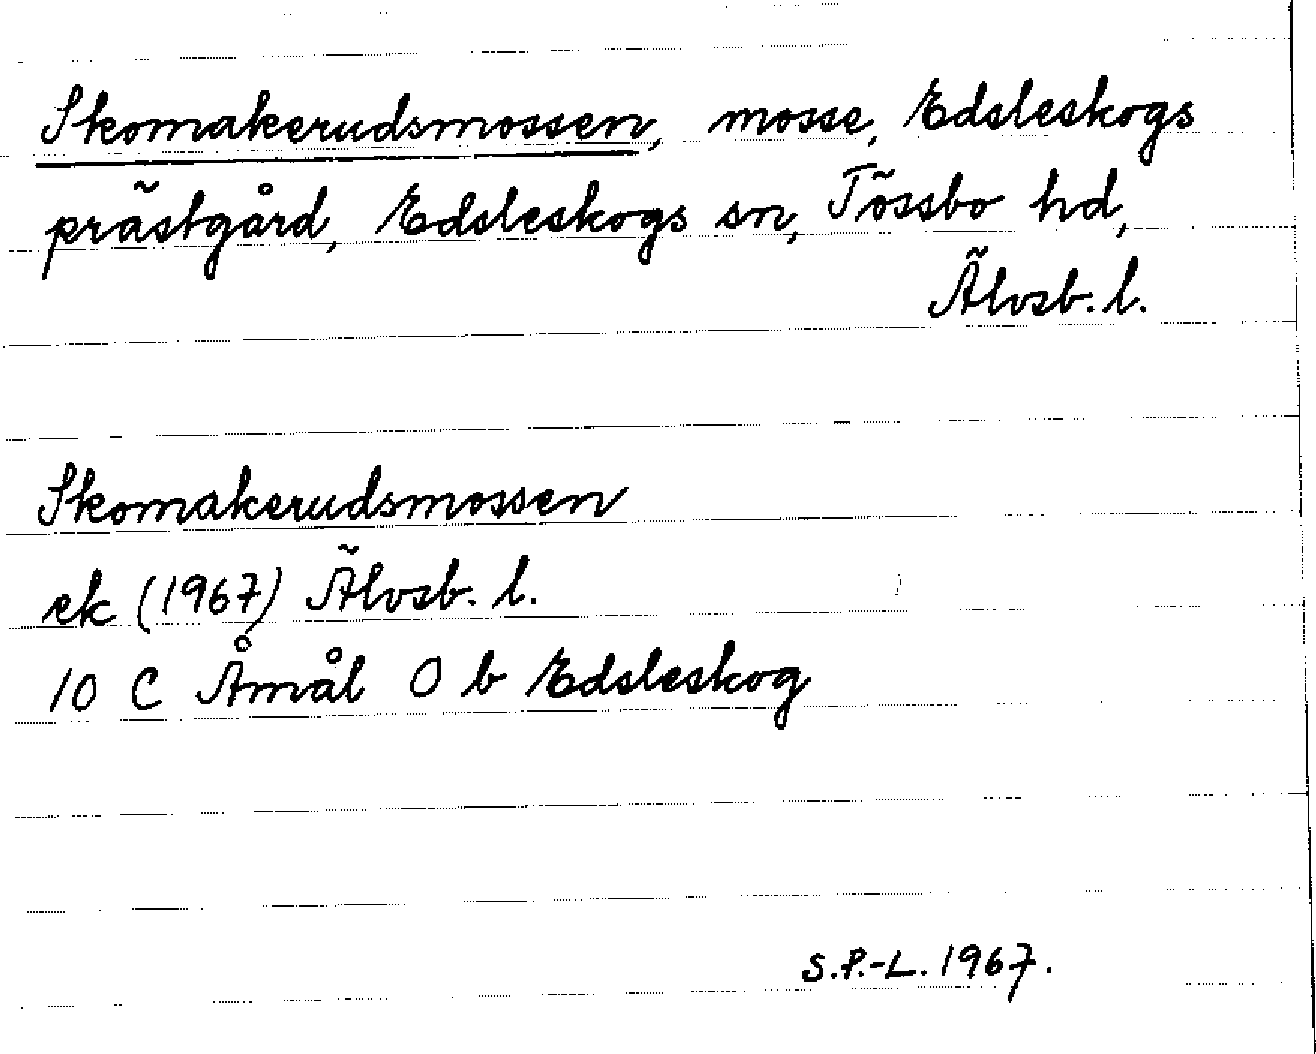 Skomakerudsmossen, mosse, Edsleskogs
prästgård, Edsleskogs sn, Tössbo hd,
Älvsb. l.
Skomakerudsmossen
ek (1967) Älvsb. l.
10 C Åmål 0 b Edsleskog
S.P.-L. 1967.